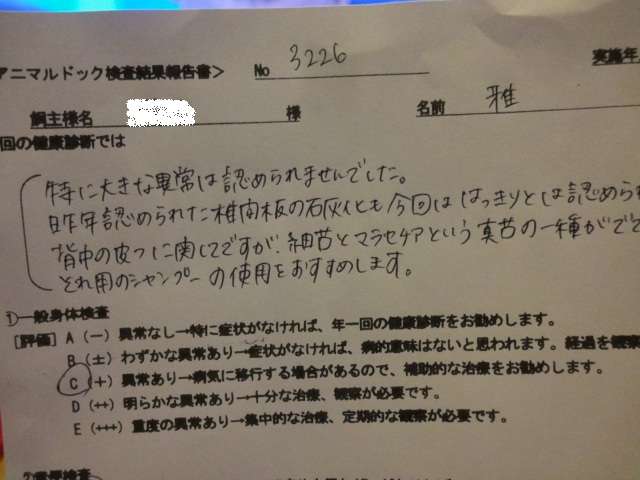 アニマルドック検査結果報告書> No 3226 実施年
飼主様名 様 名前 雅
回の健康診断では
特に大きな異常は認められませんでした。
昨年認められた椎間板の石灰化も今回ははっきりとは認めら
背中の皮フに関してですが、細菌とマラセチアという真菌の一種がでて
それ用のシャンプーの使用をおすすめします。
①一般身体検査
[評価] A (－) 異常なし→特に症状がなければ、年一回の健康診断をお勧めします。
B (±) わずかな異常あり→症状がなければ、病的意味はないと思われます。経過を観察
C (+) 異常あり→病気に移行する場合があるので、補助的な治療をお勧めします。
D (++) 明らかな異常あり→十分な治療、観察が必要です。
E (+++) 重度の異常あり→集中的な治療、定期的な観察が必要です。